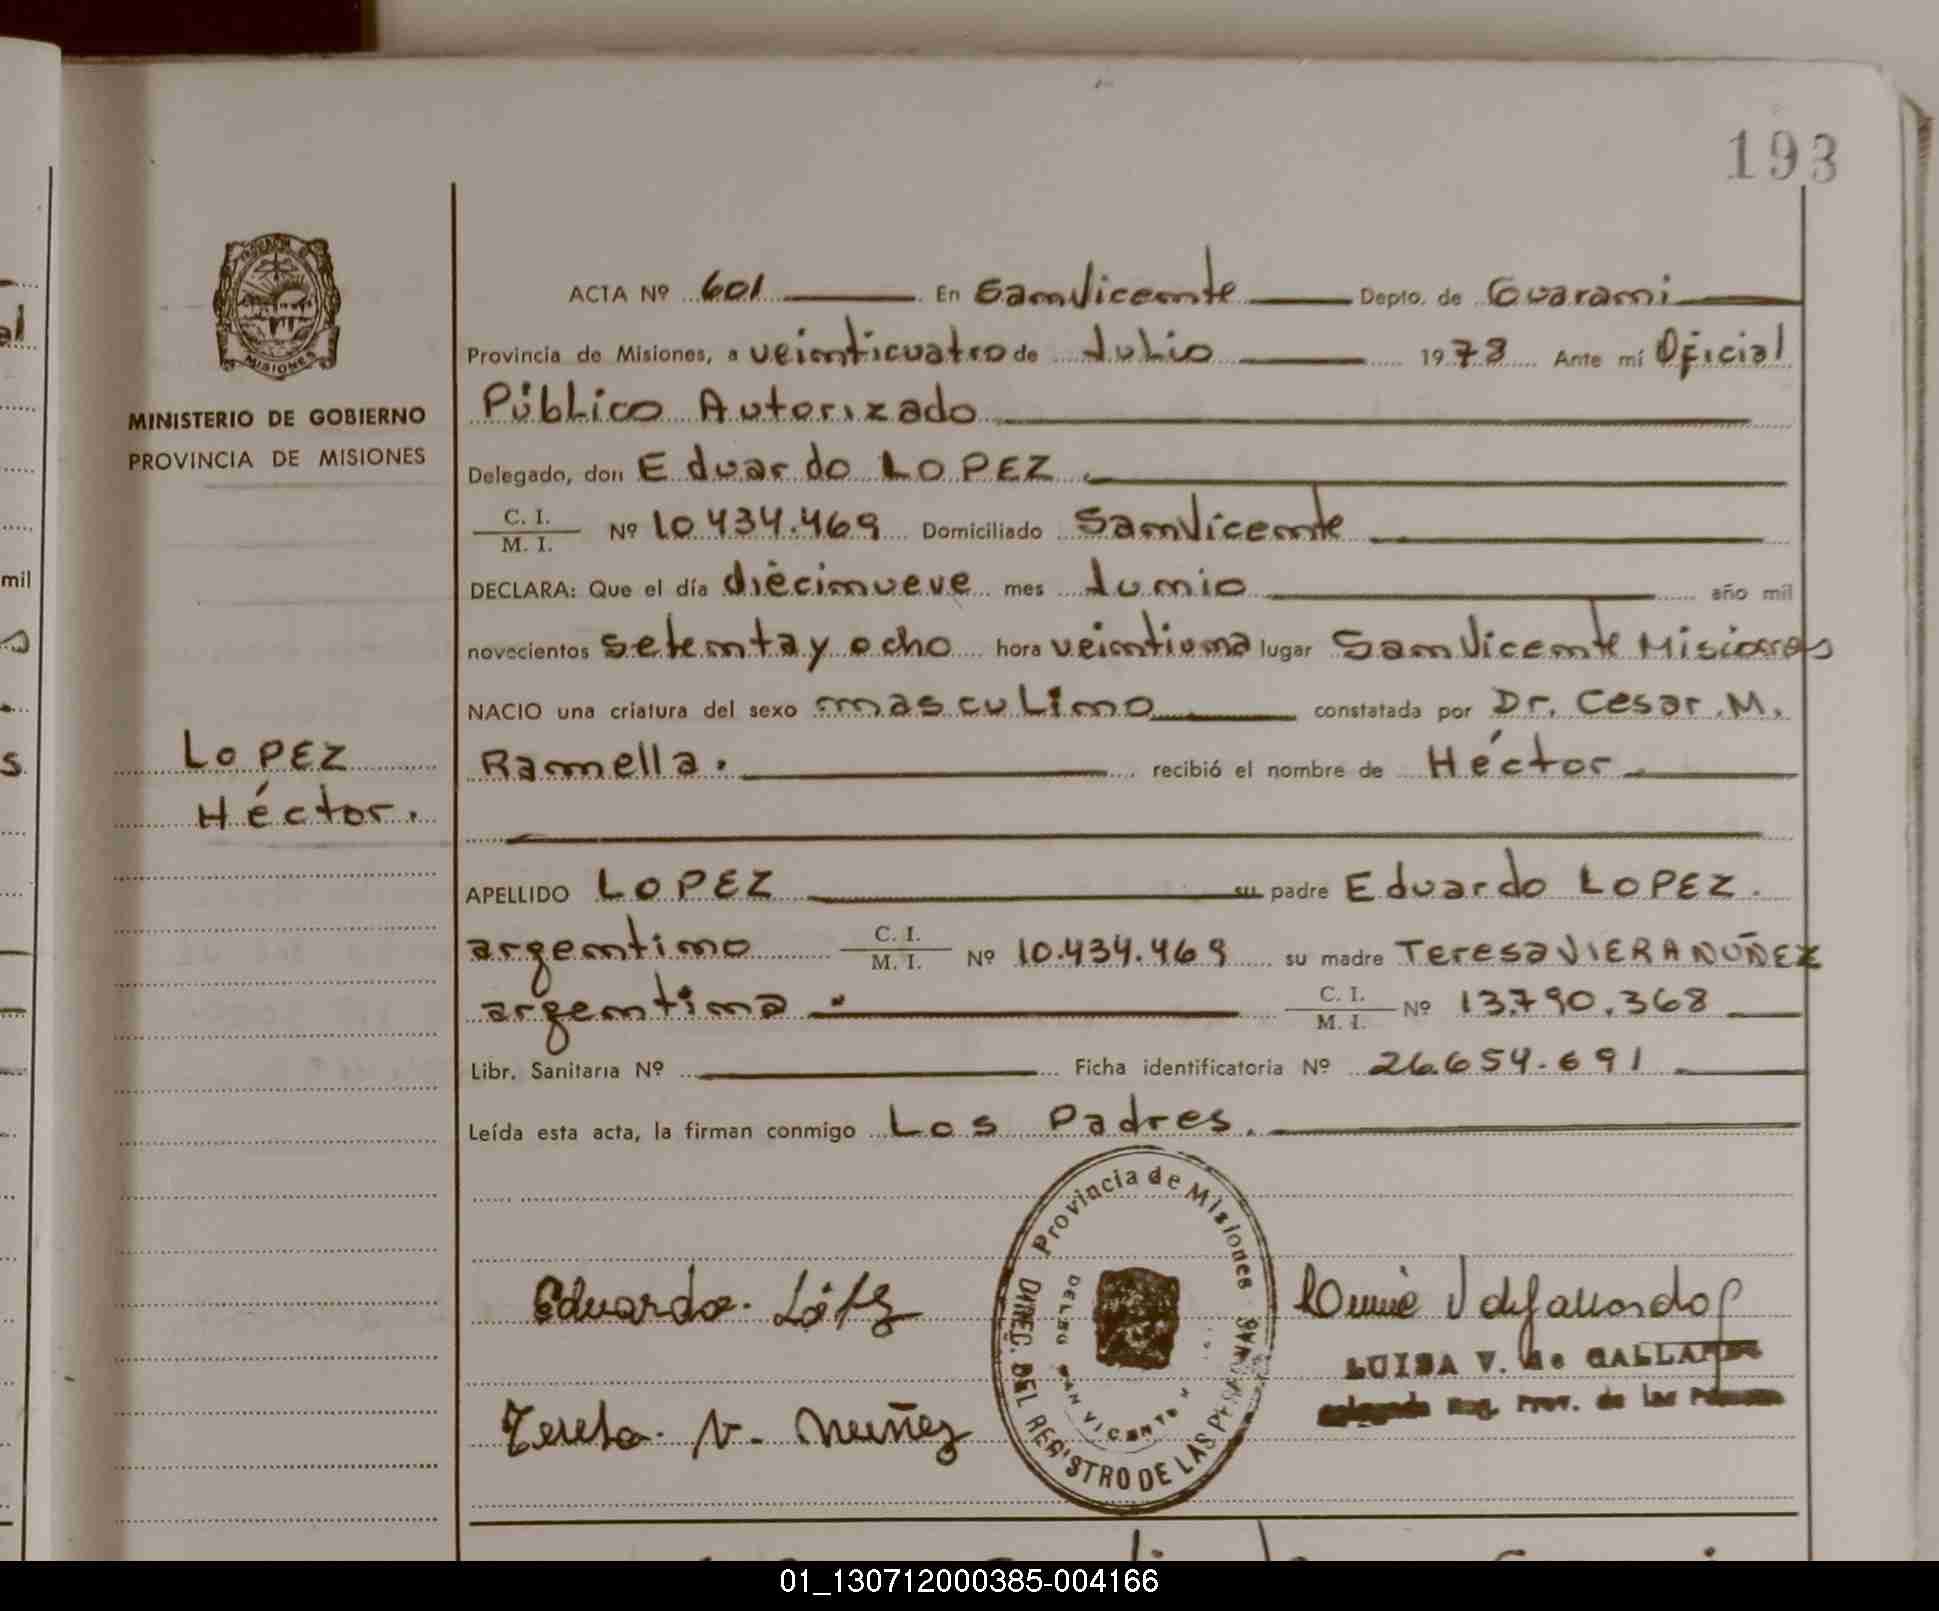 193
MISIONES
MINISTERIO DE GOBIERNO
PROVINCIA DE MISIONES
LOPEZ
Héctor.
ACTA Nº 601 En San Vicente Depto. de Guarani
Provincia de Misiones, a veinticuatro de Julio 1978 Ante mí Oficial
Público Autorizado
Delegado, don Eduardo LOPEZ.
C. I.
M. I. Nº 10.434.469 Domiciliado San Vicente
DECLARA: Que el día diecinueve mes Junio año mil
novecientos setenta y ocho hora veintiuna lugar San Vicente Misiones
NACIO una criatura del sexo masculino constatada por Dr. Cesar M.
Ramella. recibió el nombre de Héctor.
APELLIDO LOPEZ su padre Eduardo LOPEZ.
argentino C. I.
M. I. Nº 10.434.469 su madre Teresa VIERA NUÑEZ
argentina. C. I.
M. I. Nº 13.790.368
Libr. Sanitaria Nº Ficha identificatoria Nº 26.654.691
Leída esta acta, la firman conmigo Los Padres.
Provincia de Misiones
DIREC. DEL REGISTRO DE LAS PERSONAS
DELEG. SAN VICENTE
Eduardo. López
LUISA V. de GALLARDO
Delegada Reg. Prov. de las Personas
Teresa. V. Nuñez
mil
01_130712000385-004166